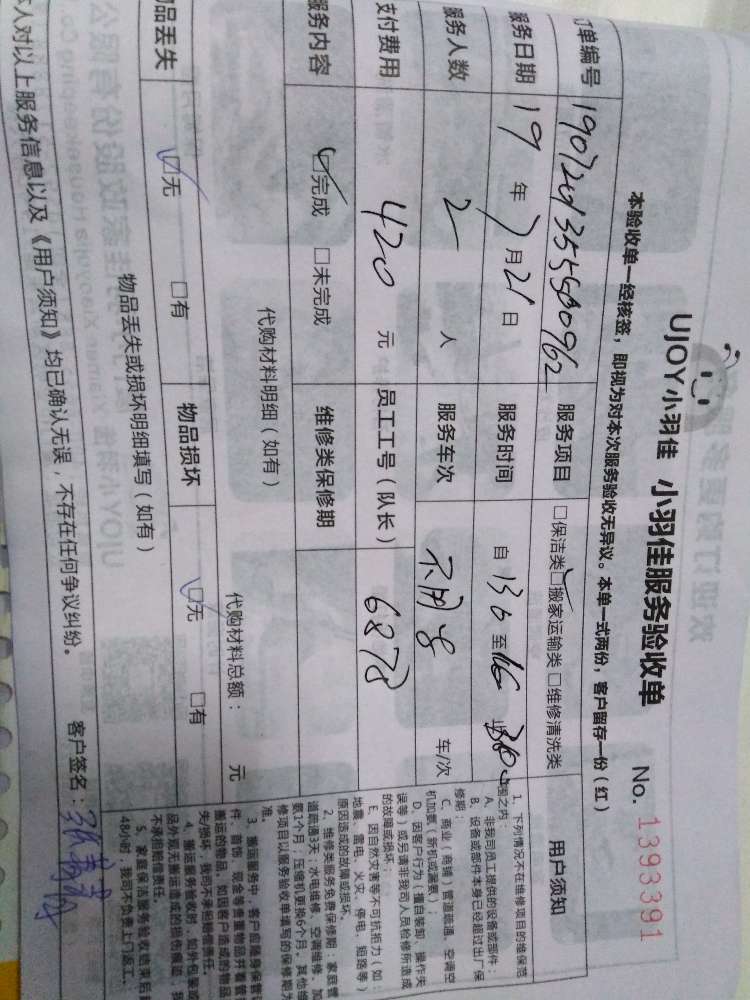 UJOY小羽佳 小羽佳服务验收单 No. 1393391
本验收单一经核签，即视为对本次服务验收无异议。本单一式两份，客户留存一份（红）
订单编号 服务项目 □保洁类 □搬家运输类 □维修清洗类 用户须知
服务日期 19 年 7 月 21 日 服务时间 自 至
服务人数 2 人 服务车次 不用 车/次
支付费用 420 元 员工工号（队长） 6878
服务内容 □完成 □未完成 维修类保修期
代购材料明细（如有） 代购材料总额： 元
物品丢失 □无 □有 物品损坏 □无 □有
物品丢失或损坏明细填写（如有）
本人对以上服务信息以及《用户须知》均已确认无误，不存在任何争议纠纷。 客户签名：
1. 下列情况不在维修项目的维保范
围之内：
A. 非我司员工提供的设备或部件；
B. 设备或部件本身已经超过出厂保
修期；
C. 商业（商铺）管道疏通、空调空
机加氨（新机或漏氨）；
D. 因客户行为（擅自装卸、操作失
误等）或另请非我司人员检修所造成
的故障或损坏；
E. 因自然灾害等不可抗拒力（如：
地震、雷电、火灾、停电、短路等）
原因造成的故障或损坏。
2. 维修类服务免费保修期：家庭管
道疏通3天；水电维修、空调维修、加
氨1个月；压缩机更换6个月。其他维
修项目以服务验收单填写的保修期为
准。
3. 搬运服务中，客户应随身保管
件、首饰、现金等贵重物品并看管
搬运的物品，如因客户造成的物品
失/损坏，我司不承担赔偿责任。
4. 搬运服务验收时，如外包装或
品外观无搬运造成的损伤痕迹，我
不承担赔偿责任。
5. 家庭保洁服务验收结束后
48小时，我司不负责上门返工。